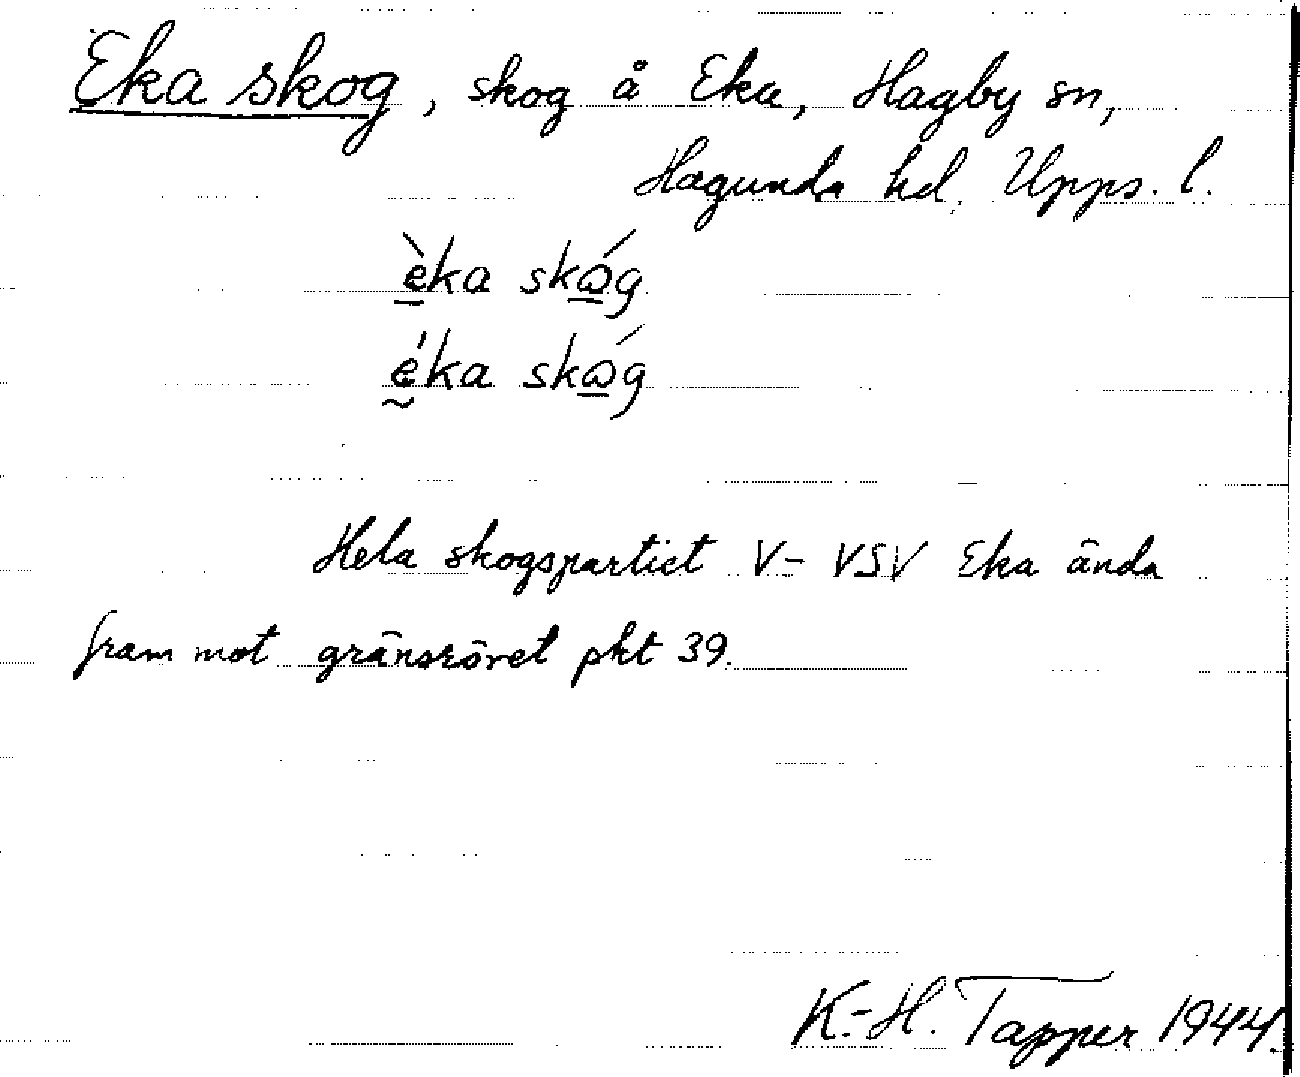 Eka skog, skog å Eka, Hagby sn,
Hagunda hd. Upps. l.
è̱ka skɷ̱́g
ḛ́ka skɷ̱́g
Hela skogspartiet V- VSV Eka ända
fram mot gränsröret pkt 39.
K.-H. Tapper 1944.